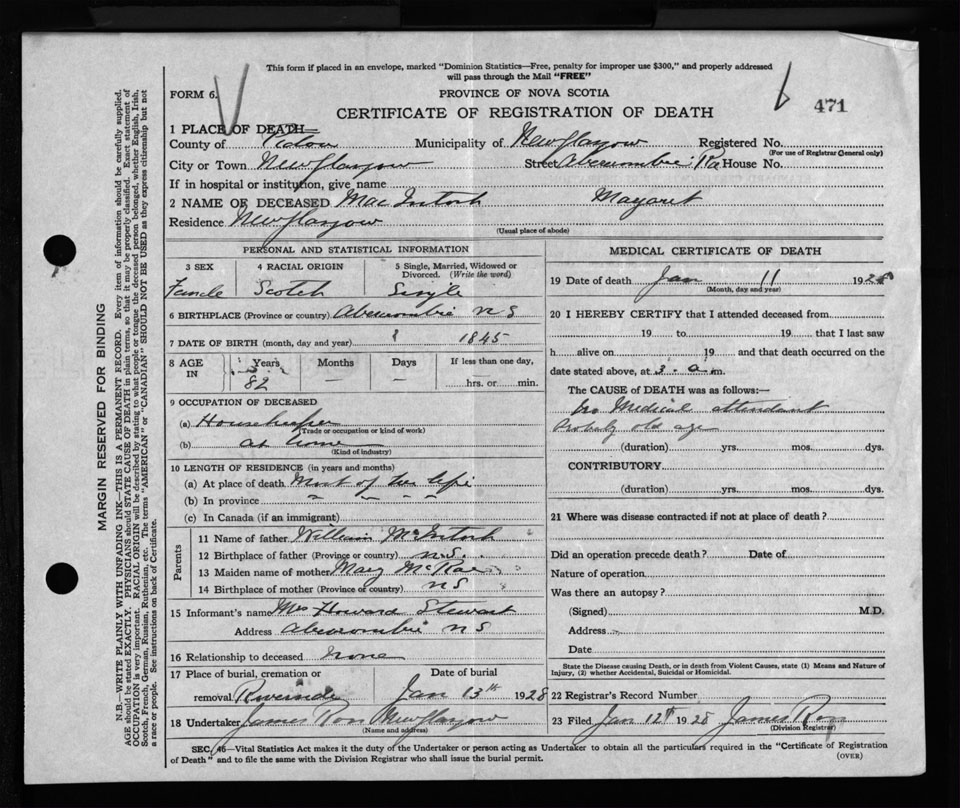 This form if placed in an envelope, marked "Dominion Statistics—Free, penalty for improper use $300," and properly addressed
will pass through the Mail "FREE"
FORM 6.
PROVINCE OF NOVA SCOTIA
471
CERTIFICATE OF REGISTRATION OF DEATH
1 PLACE OF DEATH—
County of Pictou Municipality of New Glasgow Registered No.
(For use of Registrar General only)
City or Town New Glasgow Street Abercrombie Rd House No.
If in hospital or institution, give name
2 NAME OF DECEASED MacIntosh Margaret
Residence New Glasgow
(Usual place of abode)
PERSONAL AND STATISTICAL INFORMATION
3 SEX 4 RACIAL ORIGIN 5 Single, Married, Widowed or Divorced. (Write the word)
Female Scotch Single
6 BIRTHPLACE (Province or country) Abercrombie N S
7 DATE OF BIRTH (month, day and year) 1845
8 AGE IN Years Months Days If less than one day,
82 — — hrs. or min.
9 OCCUPATION OF DECEASED
(a) Housekeeper
(Trade or occupation or kind of work)
(b) at home
(Kind of industry)
10 LENGTH OF RESIDENCE (in years and months)
(a) At place of death Most of her life
(b) In province " " " "
(c) In Canada (if an immigrant)
Parents
11 Name of father William McIntosh
12 Birthplace of father (Province or country) N.S.
13 Maiden name of mother Mary McRae
14 Birthplace of mother (Province or country) N S
15 Informant's name Mrs Howard Stewart
Address Abercrombie N S
16 Relationship to deceased none
17 Place of burial, cremation or removal Riverside Date of burial Jan 13th 1928
18 Undertaker James Ross New Glasgow
(Name and address)
MEDICAL CERTIFICATE OF DEATH
19 Date of death Jan 11 1928
(Month, day and year)
20 I HEREBY CERTIFY that I attended deceased from
19 to 19 that I last saw
h alive on 19 and that death occurred on
date stated above, at 3. a m.
The CAUSE of DEATH was as follows:—
No Medical attendant
Probably old age
(duration) yrs. mos. dys.
CONTRIBUTORY
(duration) yrs. mos. dys.
21 Where was disease contracted if not at place of death?
Did an operation precede death? Date of
Nature of operation
Was there an autopsy?
(Signed) M.D.
Address
Date
State the Disease causing Death, or in death from Violent Causes, state (1) Means and Nature of
Injury, (2) whether Accidental, Suicidal or Homicidal.
22 Registrar's Record Number
23 Filed Jan 12th 1928 James Ross
(Division Registrar)
SEC. 46—Vital Statistics Act makes it the duty of the Undertaker or person acting as Undertaker to obtain all the particulars required in the "Certificate of Registration
of Death" and to file the same with the Division Registrar who shall issue the burial permit.
(OVER)
MARGIN RESERVED FOR BINDING
N.B.—WRITE PLAINLY WITH UNFADING INK—THIS IS A PERMANENT RECORD. Every item of information should be carefully supplied.
AGE should be stated EXACTLY. PHYSICIANS should STATE CAUSE OF DEATH in plain terms, so that it may be properly classified. Exact statement of
OCCUPATION is very important. RACIAL ORIGIN will be described by stating to what people or tongue the deceased person belonged, whether English, Irish,
Scotch, French, German, Russian, Ruthenian, etc. The terms "AMERICAN" or "CANADIAN" SHOULD NOT BE USED as they express citizenship but not
a race or people. See instructions on back of Certificate.